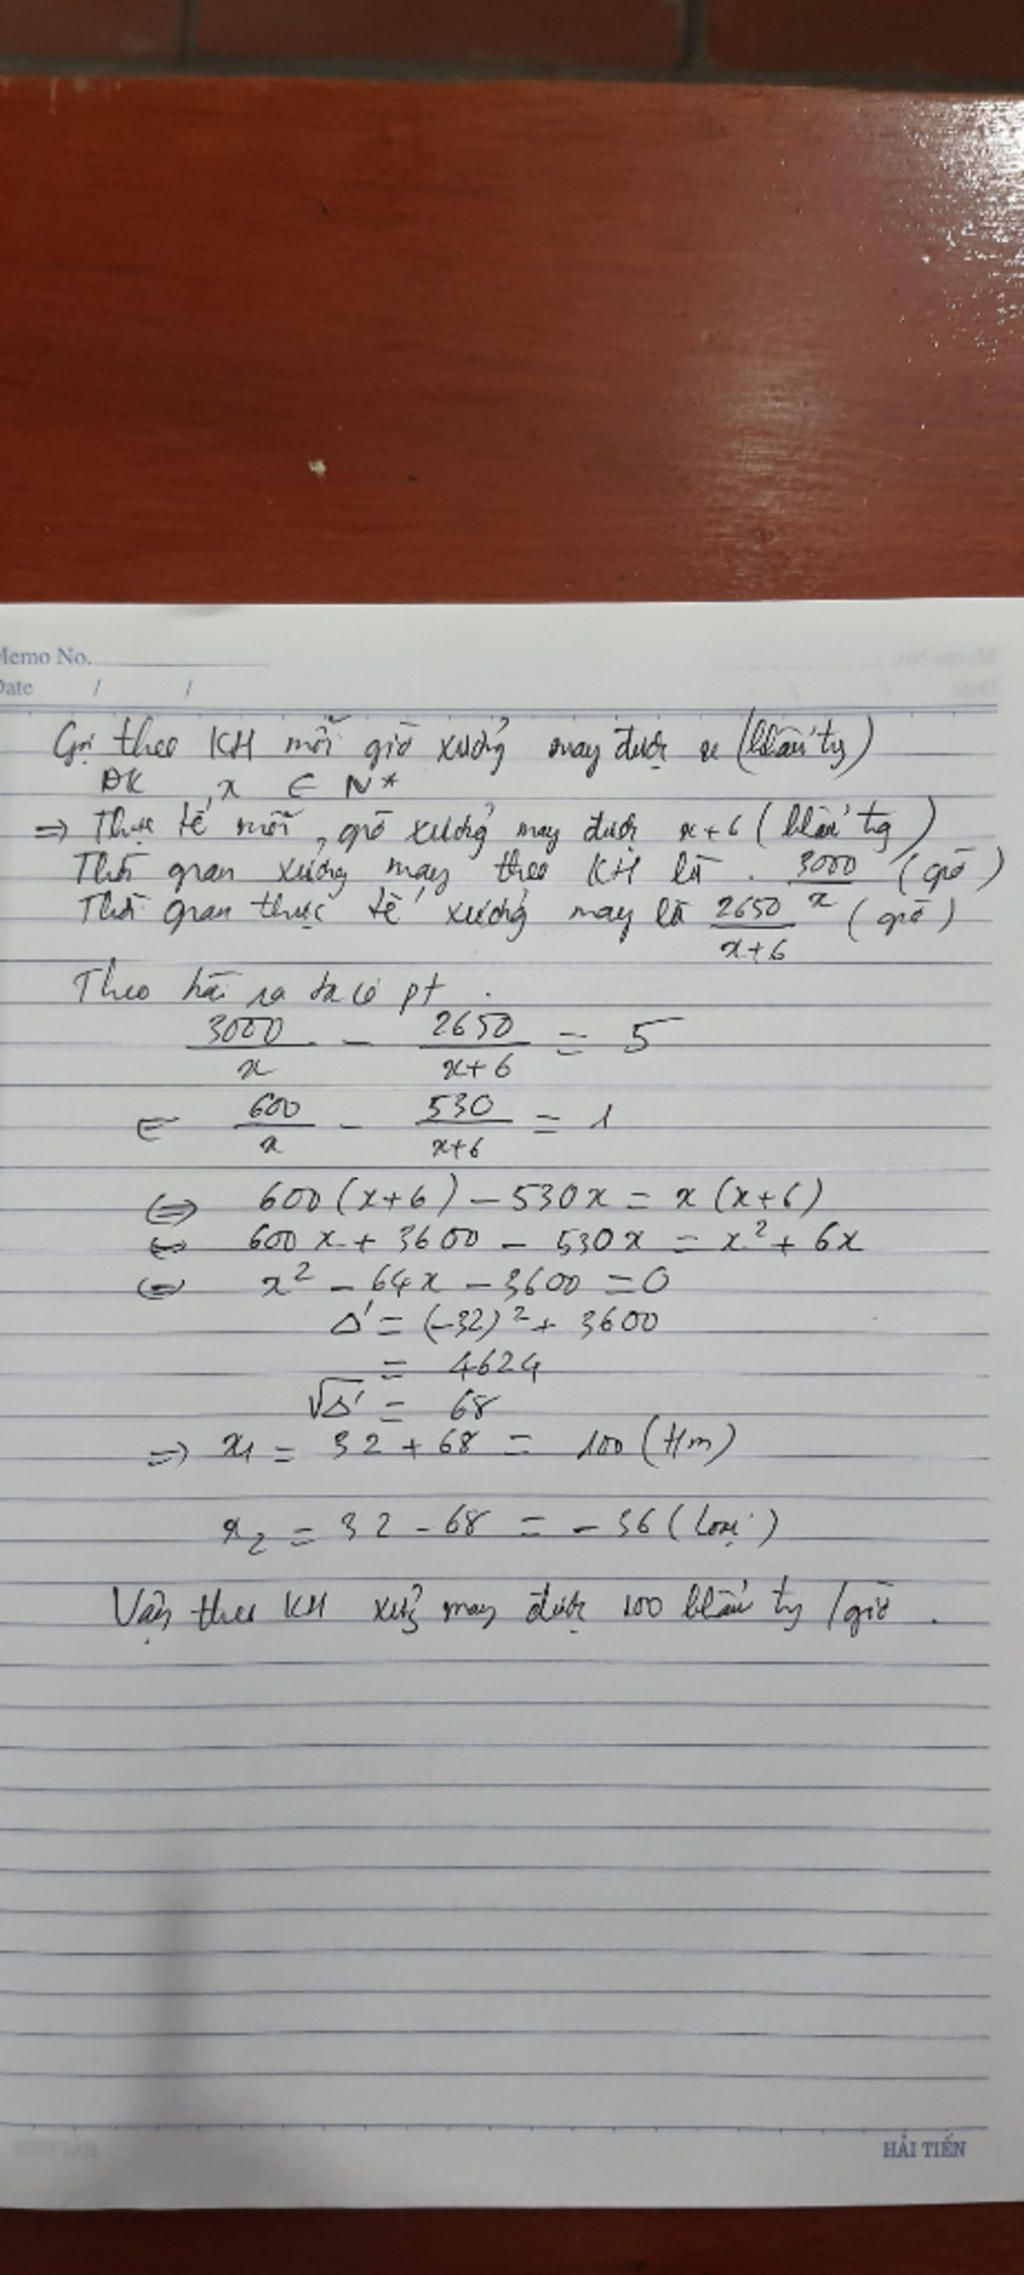 Memo No.
Date / /
Gọi theo KH mỗi giờ xưởng may được x (khẩu trg)
ĐK x ∈ N*
=> Thực tế mỗi giờ xưởng may được x+6 (khẩu trg)
Thời gian xưởng may theo KH là 3000/x (giờ)
Thời gian thực tế xưởng may là 2650/x+6 (giờ)
Theo bài ra ta có pt
3000/x - 2650/x+6 = 5
600/x - 530/x+6 = 1
<=> 600(x+6) - 530x = x(x+6)
<=> 600x + 3600 - 530x = x² + 6x
<=> x² - 64x - 3600 = 0
Δ' = (-32)² + 3600
= 4624
√Δ' = 68
=> x₁ = 32 + 68 = 100 (tm)
x₂ = 32 - 68 = -36 (loại)
Vậy theo KH xưởng may được 100 khẩu trg /giờ.
HẢI TIẾN